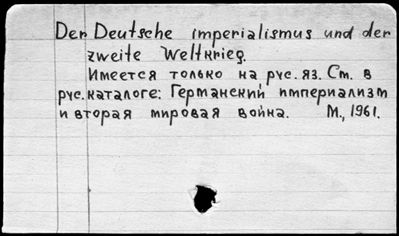 Der Deutsche imperialismus und der
zweite Weltkrieg.
Имеется только на рус. яз. См. в
рус. каталоге: Германский империализм
и вторая мировая война. М., 1961.